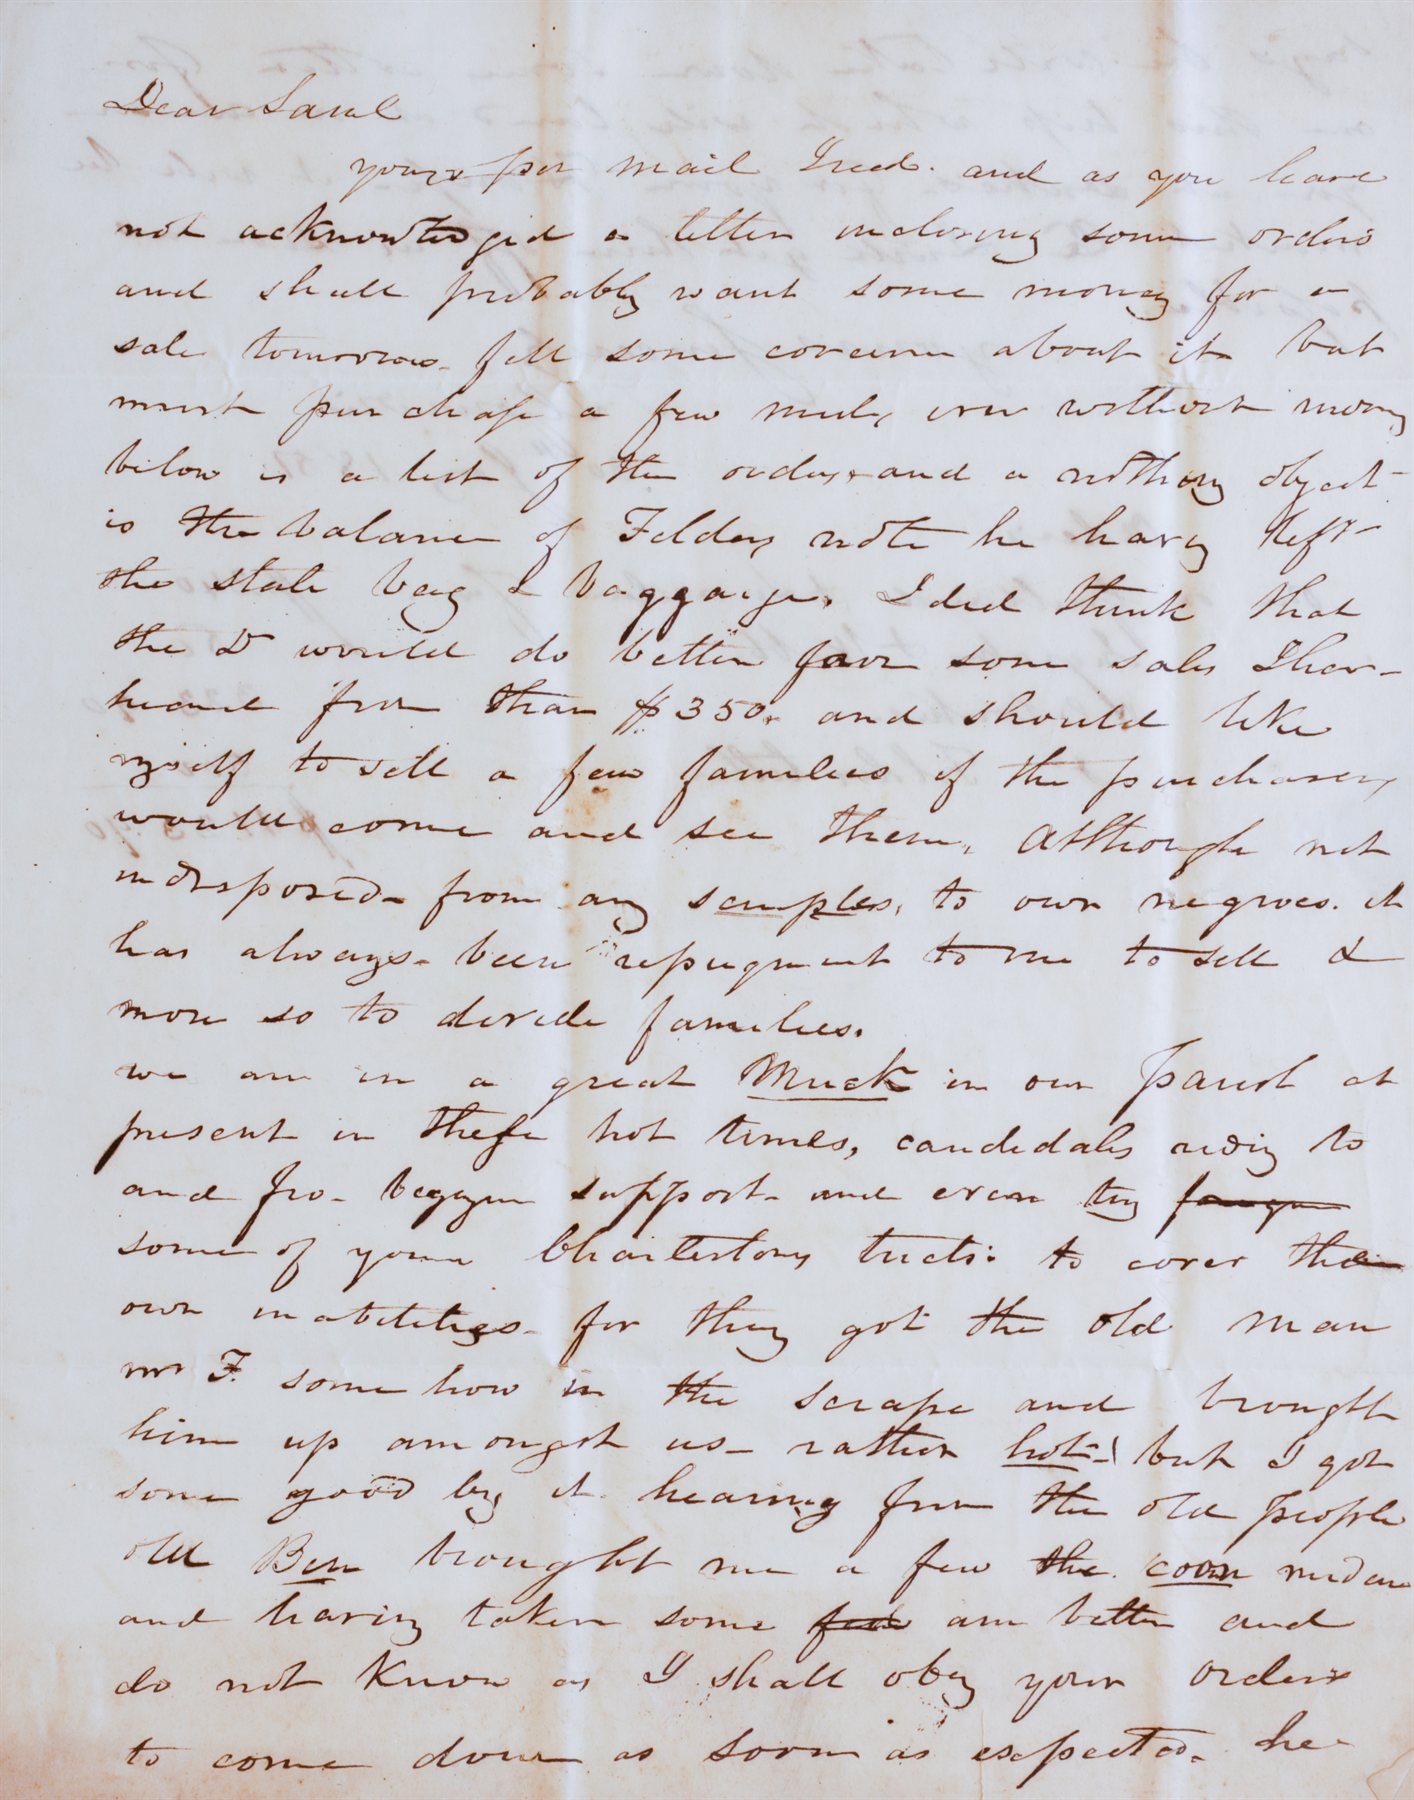 Dear Saml
yours per mail Irecd. and as you have
not acknowledged a letter inclosing some orders
and shall probably want some money for a
sale tomorrow. felt some concern about it but
must purchase a few ever without money
below is a list of the orders and a nothing object
is the balance of Felders note he having left
the state bag & baggage. I did think that
the Dr would do better from some sales Ihav-
heard from than $350. and should like
myself to sell a few families if the purchasers
would come and see them, Although not
indisposed from any scruples, to own negroes. it
has always been repugnent to me to sell &
more so to divide families.
we are in a great Muck in our Parish at
present in these hot times, candidates riding to
and fro. beggin support and even try
some of your Charlestons tricks to cover their
own inabilities for they got the old man
mr F. some how in the scrape and brought
him up amongst us rather hot! but I got
some good by it hearing from the old people
old Ben brought me a few the coon
and having taken some am better and
do not Know as I shall obey your orders
to come down as soon as expected. he